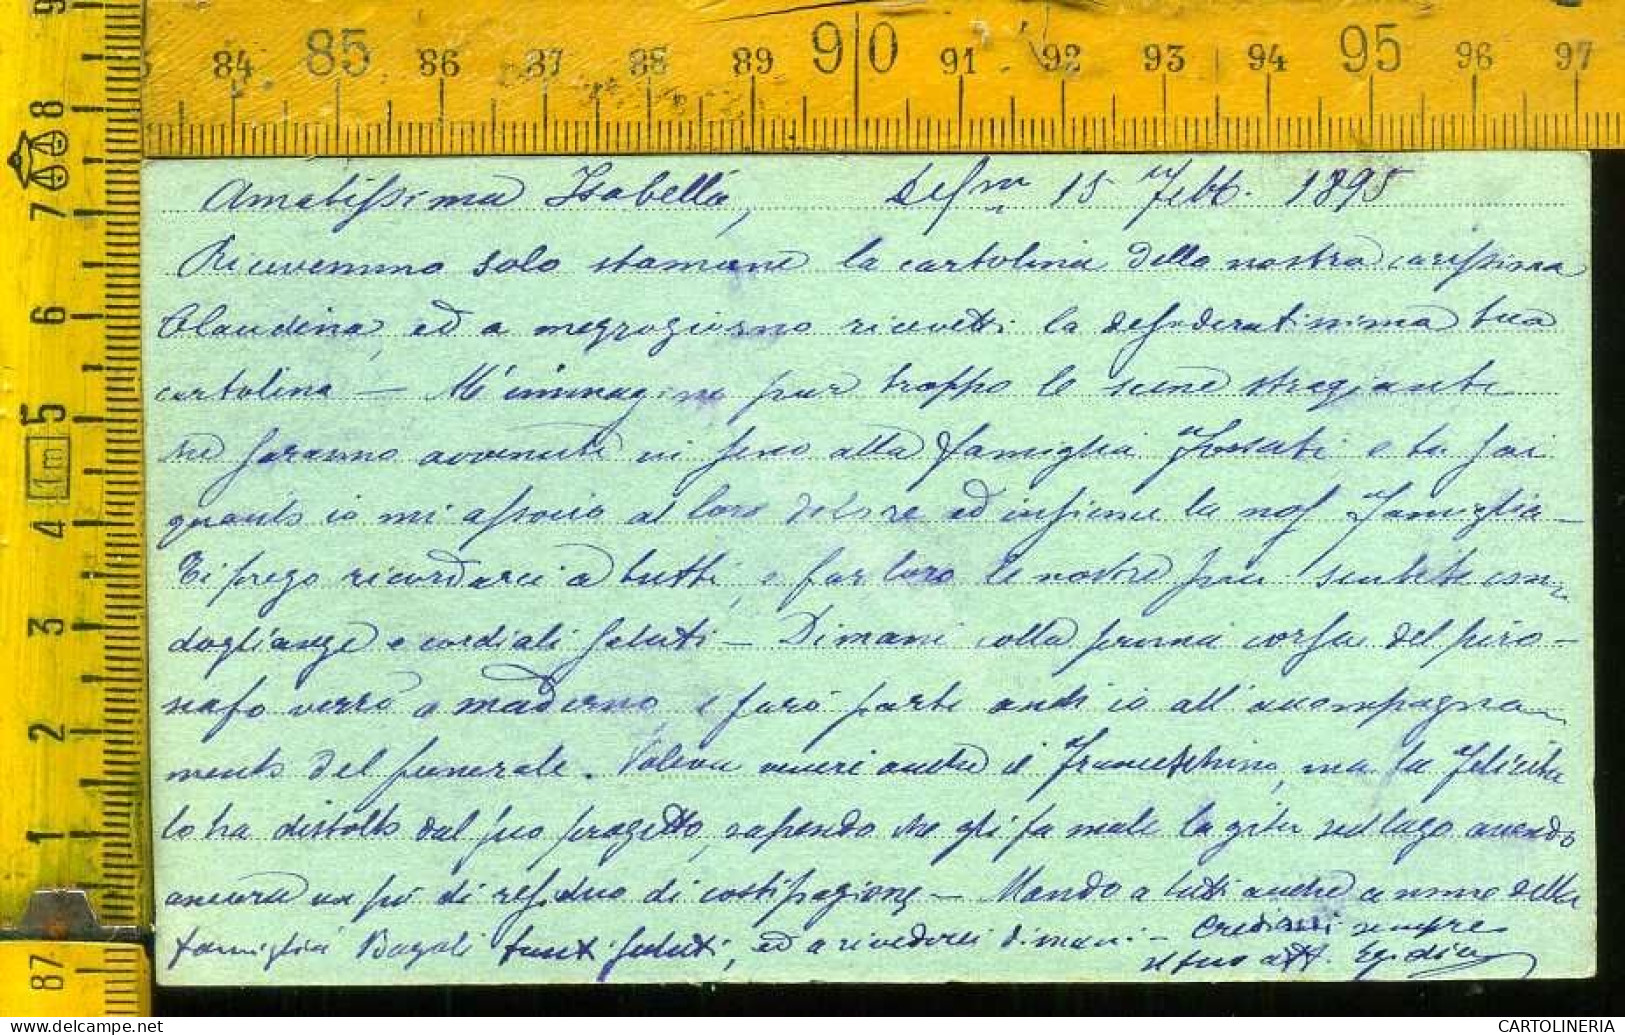 84 85 86 87 88 89 90 91 92 93 94 95 96 97
9
8
7
6
5
1m
4
3
2
1
87
Amatissima Isabella, 15 Febb. 1895
Ricevemmo solo stamane la cartolina della nostra carissima
Claudina, ed a mezzogiorno ricevetti la desideratissima tua
cartolina — M'immagino pur troppo le scene strazianti
che saranno avvenute in seno alla famiglia Fossati, e tu sai
quanto io mi associo al loro dolore ed insieme la nos Famiglia —
Ti prego ricordarci a tutti, e far loro le nostre più sentite con-
doglianze e cordiali saluti — Dimani colla prima corsa del piro-
scafo verrò a Maderno, e farò parte anch'io all'accompagna-
mento del funerale. Voleva venire anche il Franceschino, ma la Felicita
lo ha distolto dal suo progetto, sapendo che gli fa male la gita sul lago avendo
ancora un pò di residuo di costipazione — Mando a tutti anche a nome della
famiglia tanti saluti, ed a rivederci dimani — Credimi sempre
il tuo aff. Egidio
CARTOLINERIA
delcampe.net